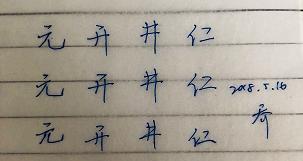 元 开 井 仁
元 开 井 仁 2018.5.16
元 开 井 仁